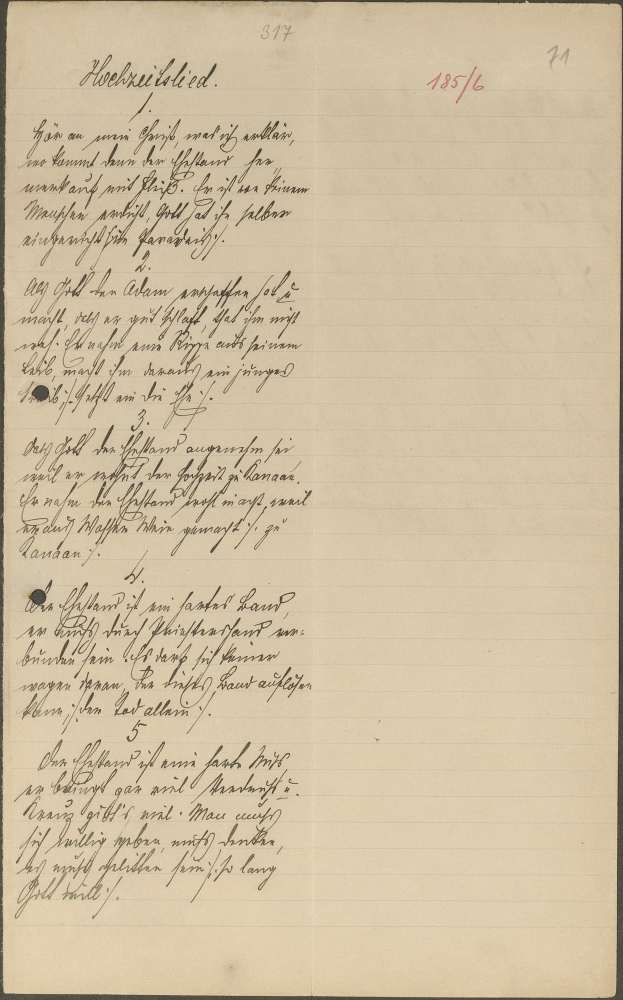 317
71
185/6
Hochzeitslied.
1.
Hör an mein Christ, was ich erklär,
wo kommt denn der Ehestand her,
merk auf mit Fleiß. Er ist von keinem
Menschen erdicht, Gott hat ihn selber
eingericht /: im Paradeis :/.
2.
Als Gott den Adam erschaffen hat u
macht, das er gut schlaft, that ihm nicht
weh. Er nahm eine Rippe aus seinem
Leib, macht ihm daraus ein junges
Weib /: setzt ein die Ehe :/.
3.
Das Gott der Ehestand angenehm sei
weil er wohnt der Hochzeit zu Kanaan.
Er nahm den Ehestand wohl in acht, weil
er aus Wasser Wein gemacht /: zu
Kanaan :/.
4.
Der Ehestand ist ein hartes Band,
er muß durch Priestershand ver-
bunden sein. Es darf sich keiner
wagen daran, der dieses Band auflösen
kann /: der Tod allein :/.
5
Der Ehestand ist eine harte Nuß
er bringt gar viel Verdruß u.
Kreuz gibt's viel. Man muß
sich willig geben, muß denken,
es muß gelitten sein /: so lang
Gott will :/.